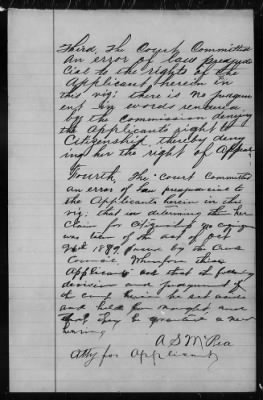 Third, The Court Committed
an error of law prejudi
cial to the rights of the
Applicant herein in
this viz; there is no judgem
ent in words rendered
by the Commission denying
the Applicants right to
Citizenship thereby deny
ing her the right of Appeal
Fourth, The Court Committed
an error of law prejudicial to
the Applicants herein in this
viz; that in determining their
claim for Citizenship no
was taken of the act of Oct
1889, passed by the
Council. Wherefore these
Applicants ask that the
decision and judgement of
the court herein be set aside
and held for naught, and
that they be granted a new
hearing
A S McRea
Atty for Applicants